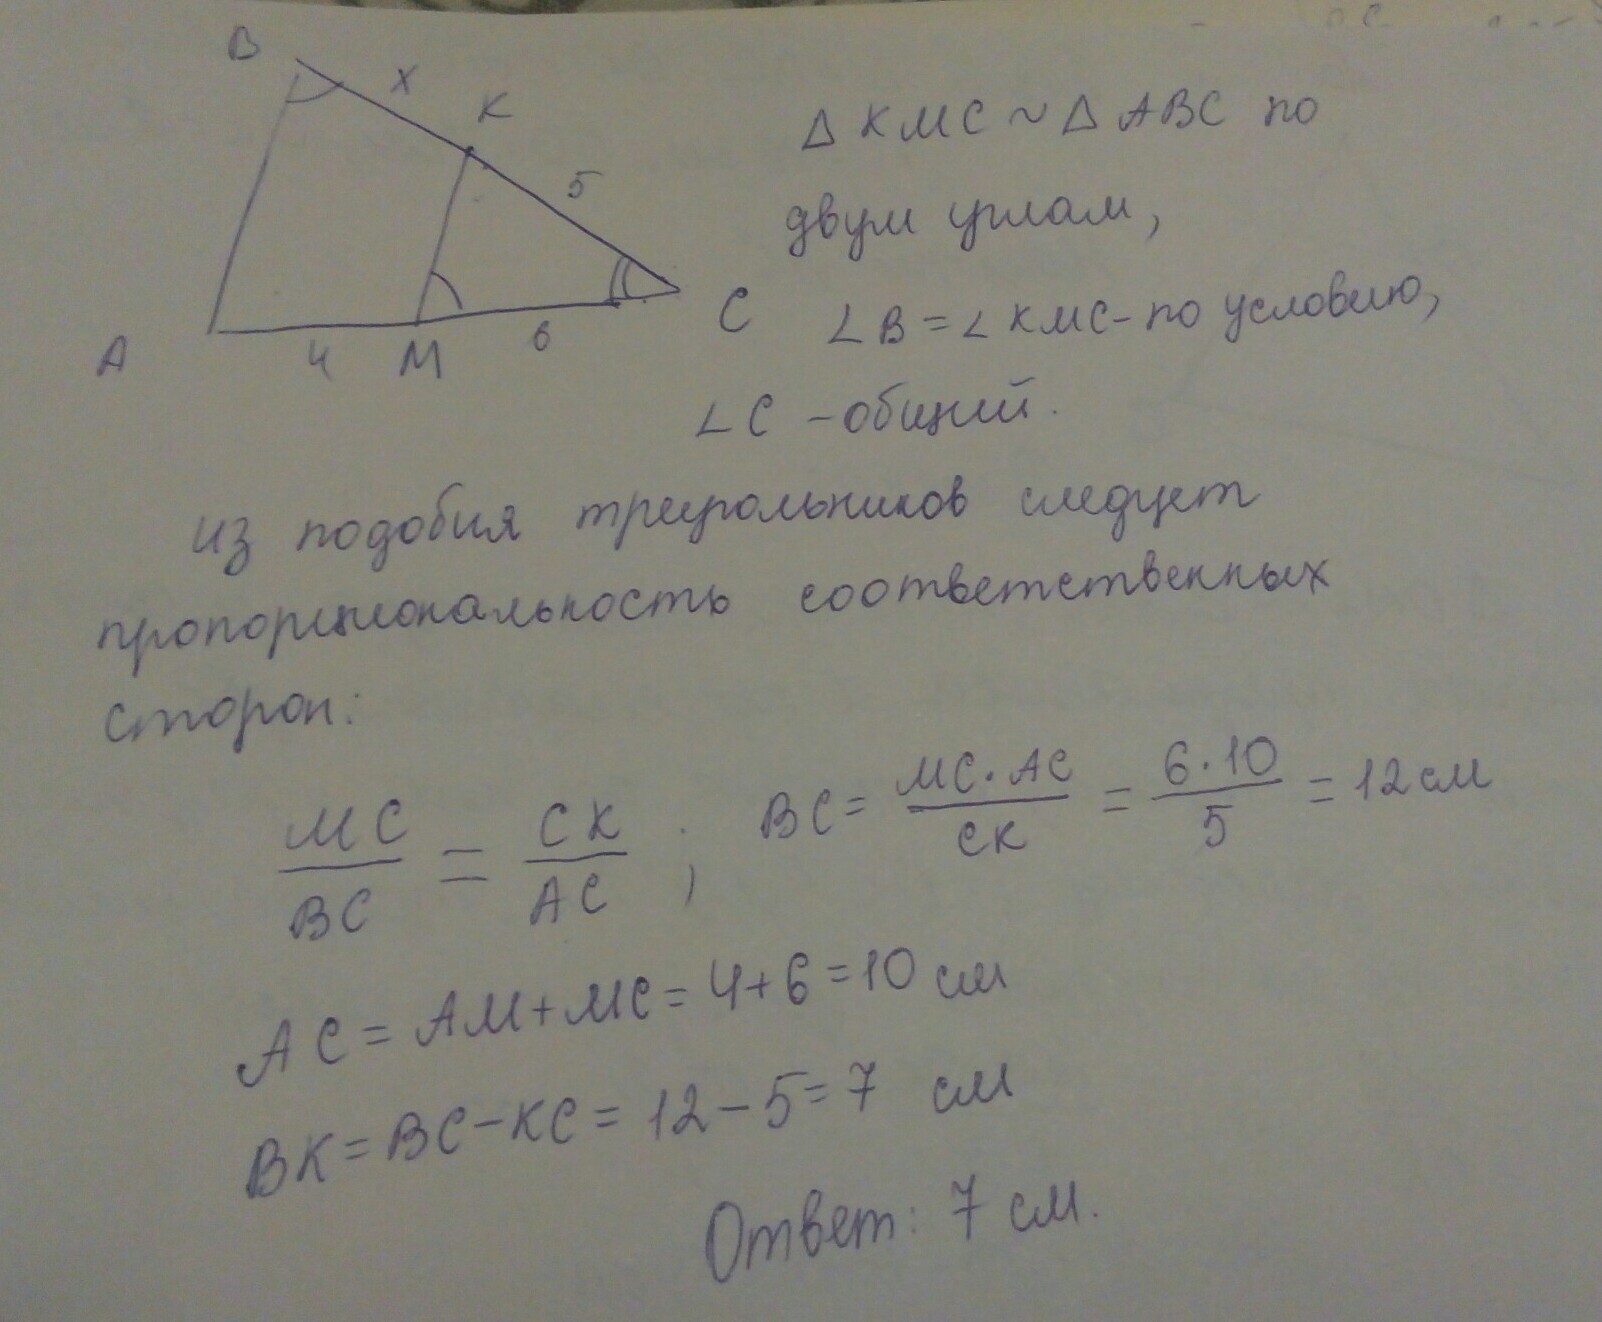 B
x
K
5
A
4
M
6
C
Δ KMC ~ Δ ABC по
двум углам,
∠B = ∠KMC - по условию,
∠C - общий.
Из подобия треугольников следует
пропорциональность соответственных
сторон:
MC/BC = CK/AC ; BC = MC·AC/CK = 6·10/5 = 12 см
AC = AM+MC = 4+6 = 10 см
BK = BC-KC = 12-5 = 7 см
Ответ: 7 см.